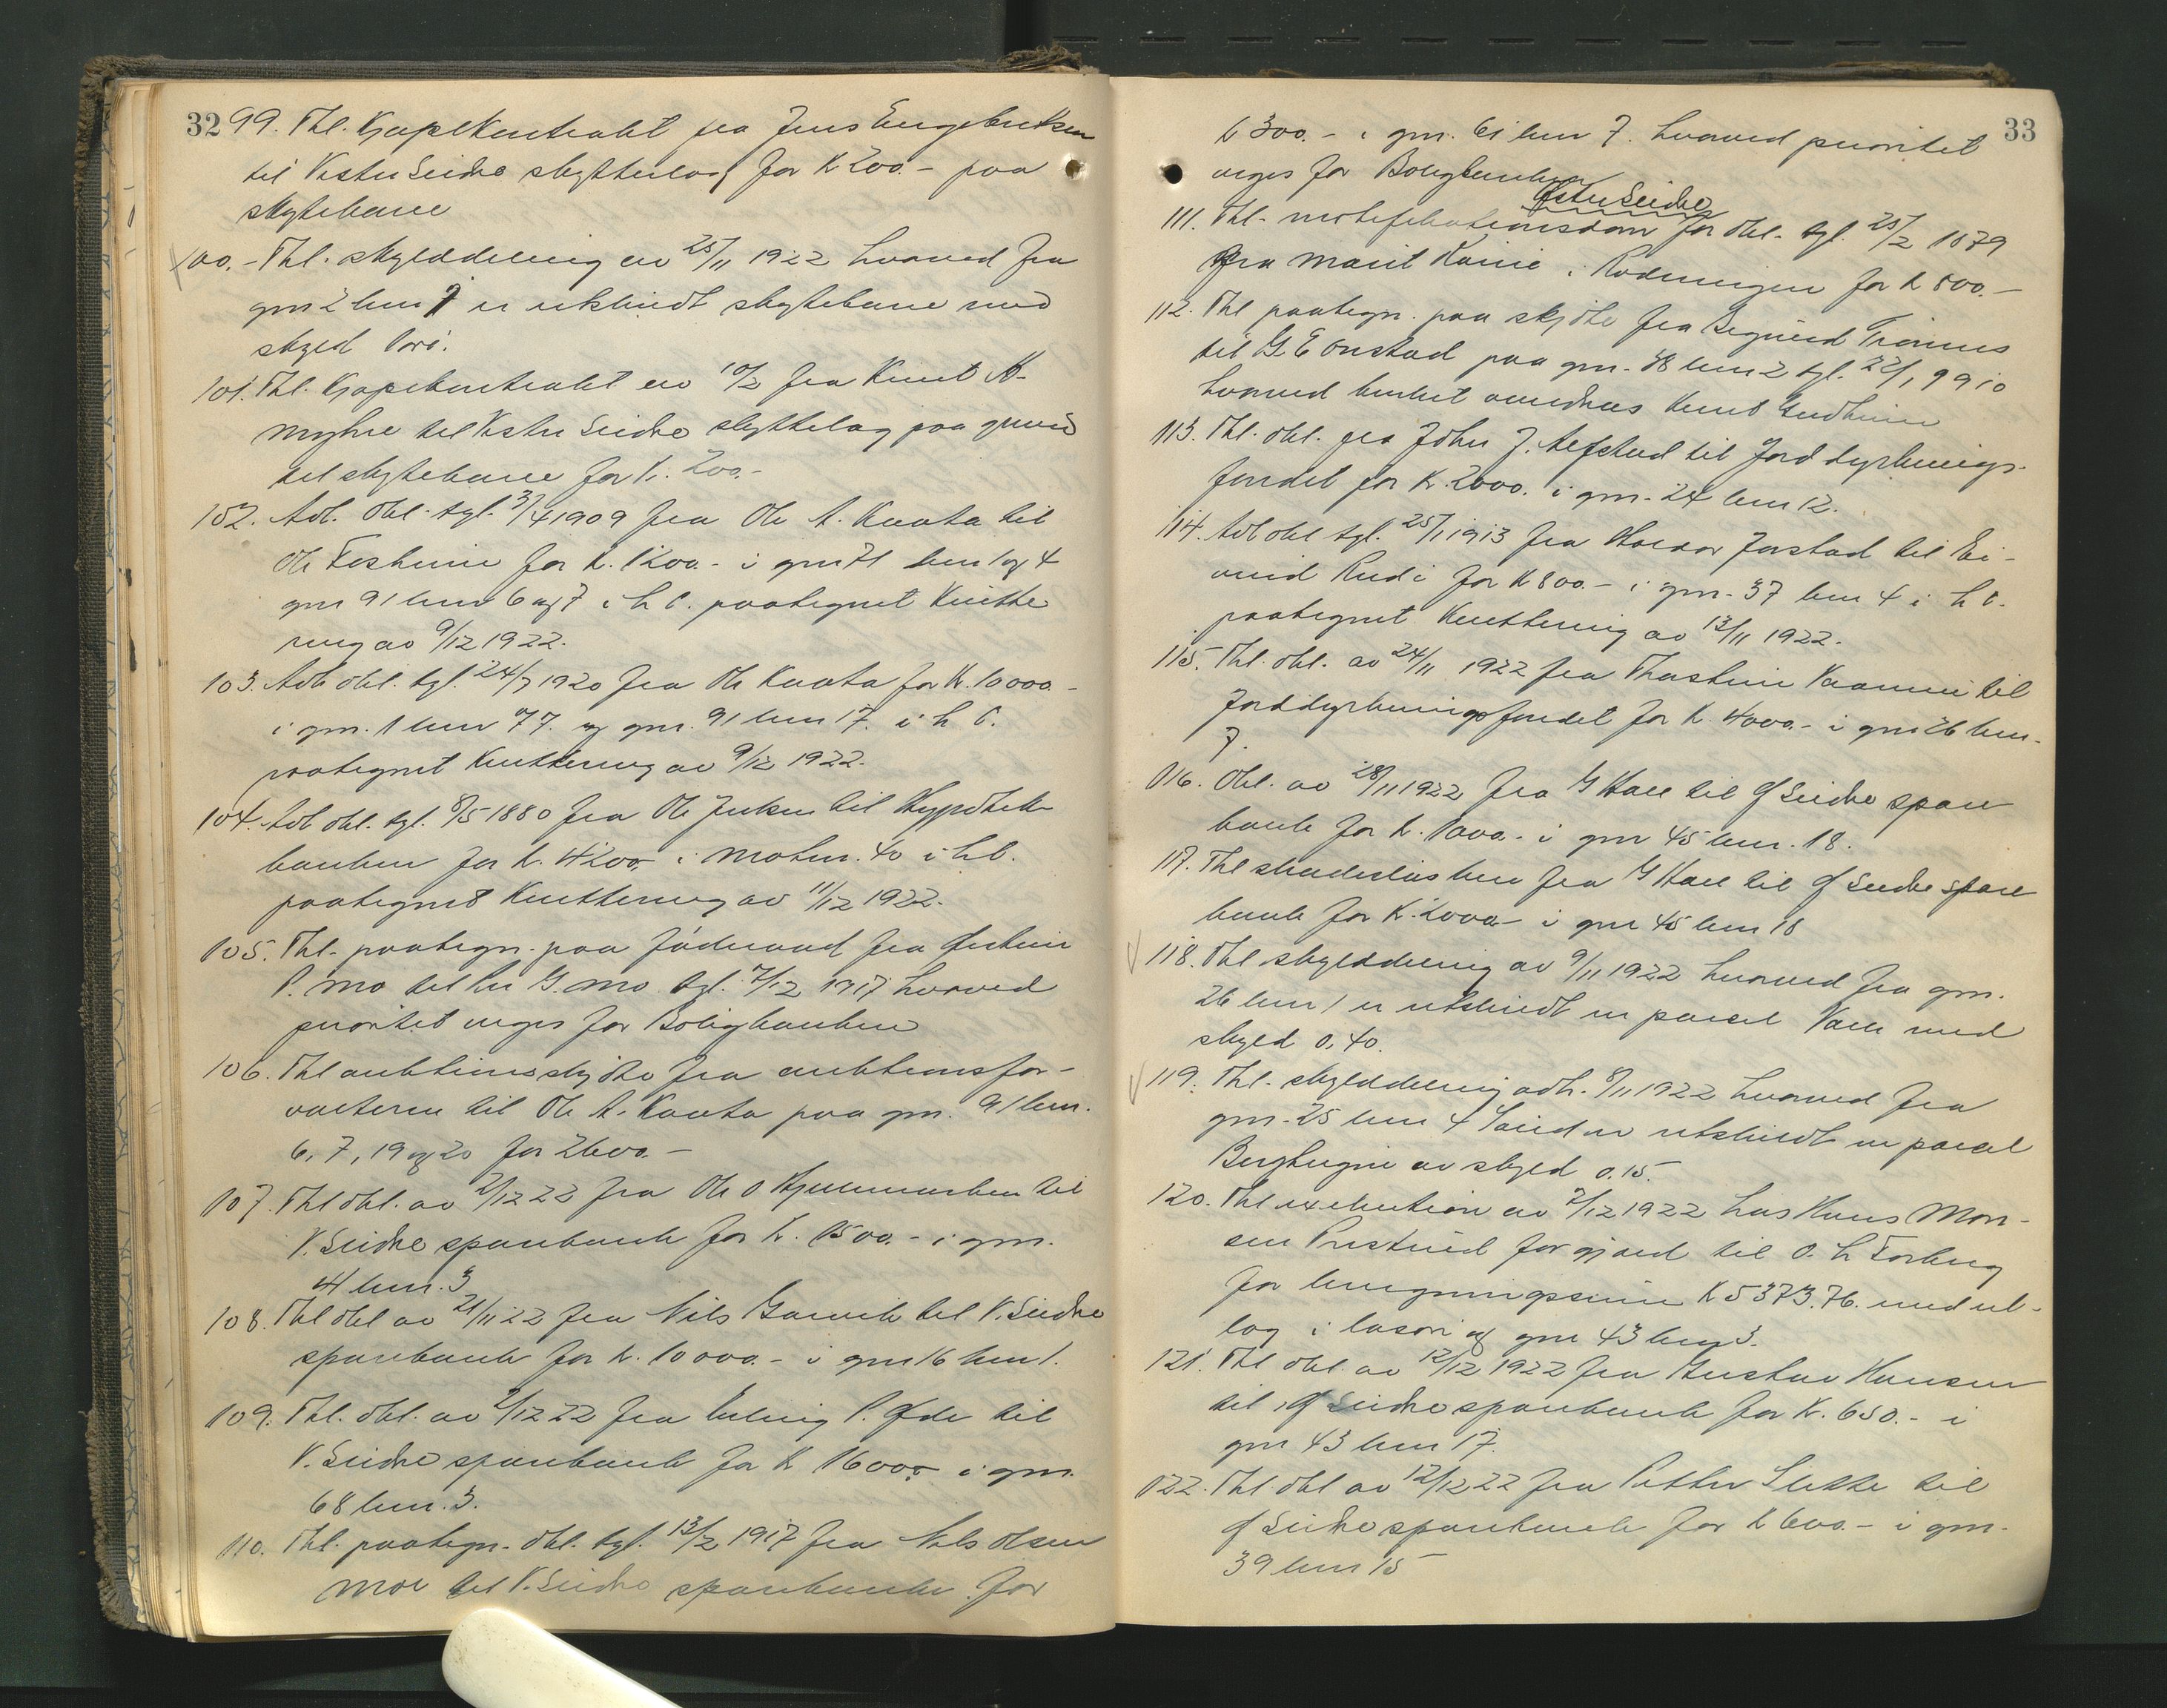 32
99. Thl. Kjøpekontrakt fra Jens Engebretsen
til Vestre Slidre skytterlag for K 200.- paa
skytebane
100. - Thl. skylddeling av 25/11 1922 hvorved fra
gnr 2 bnr 9 er utskiudt skytebane med
skyld
101. Thl. Kjøpekontrakt av 10/2 fra Knut K-
Myhre til Vestre Slidre skyttelag paa grund
til skytebane for K. 200.-
102. Avl. Obl. tgl. 3/4 1909 fra Ole A. Kvata til
Ole Fosheim for K. 1200.- i gnr 71 bnr 1 og 4
gnr 91 bnr 6 og 7 i h. b. paategnet Kvitte
ring av 9/12 1922.
103. Avl. obl. tgl. 24/7 1920 fra Ole Kvata for K. 10000.-
i gnr. 1 bnr 77. og gnr. 91 bnr 17. i h. b.
paategnet Kvittering av 9/12 1922.
104. Avl. obl. tgl. 8/5 1880 fra Ole Juksen til Hypothek
banken for K. 4200 i Matnr. 40 i h. b.
paategnet Kvittering av 11/12 1922.
105. Thl. paategn. paa føderaad fra Østein
P. Mo til G. Mo tgl. 7/12 1917 hvorved
prioritet viges for Boligbanken
106. Thl auktionsskjøte fra auktionsfor-
valteren til Ole A. Kvata paa gnr. 91 bnr.
6, 7, 19 og 20 for 2600.-
107. Thl obl. av 2/12 22 fra Ole O til
V. Slidre sparebank for K. 1500.- i gnr.
41 bnr. 3
108. Thl obl av 21/11 22 fra Nils Garvik til V. Slidre
sparebank for K. 10000.- i gnr 16 bnr 1.
109. Thl. obl. av 2/12 22 fra Erling P. til
V. Slidre sparebank for K 16000 i gnr.
68 bnr. 3.
110. Thl. paategn. obl. tgl. 13/2 1917 fra Nils Olsen
Moe til V. Slidre sparebank for
33
K 300.- i gnr. 61 bnr 7. hvorved prioritet
viges for Boligbanken
Østre Slidre
111. Thl. mortifikationsdom for obl. tgl. 25/2 1879
fra Marit i Rødningen for K 800.-
112. Thl paategn. paa skjøte fra Sigurd Trønnes
til G. E Onstad paa gnr. 38 bnr 2 tgl. 22/1 1910
hvorved bruket Knut
113. Thl. obl. fra John J. Aefstad til Jorddyrknings-
fondet for K. 2000. i gnr. 24 bnr 12.
114. Avl obl tgl. 25/1 1913 fra Haldor Jorstad til Ei-
vind Rudi for K 800.- i gnr. 37 bnr 4 i h. b.
paategnet Kvittering av 13/11 1922.
115. Thl. obl. av 24/11 1922 fra Thorstein til
Jorddyrkningsfondet for K. 4000.- i gnr 26 bnr.
7.
116. Obl. av 28/11 1922 fra G Hall til Ø Slidre spare
bank for K. 1000.- i gnr 45 bnr. 18.
117. Thl skadesløsbrev fra G Hall til Ø Slidre spare
bank for K. 2000 i gnr 45 bnr 18
118. Thl skylddeling av 9/11 1922 hvorved fra gnr.
26 bnr 1 er utskiudt en parcel med
skyld 0.40.
119. Thl. skylddeling avh. 8/11 1922 hvorved fra
gnr. 25 bnr 4 er utskiudt en parcel
av skyld 0.15.
120. Thl exekution av 7/12 1922 hos Hans Mon-
sen for gjæld til O. L Forberg
for K 5373.76. med ut-
læg i løsøre og gnr 43 bnr 3.
121. Thl obl. av 12/12 1922 fra Gustav Hansen
til Ø Slidre sparebank for K. 650.- i
gnr 43 bnr 17.
122. Thl obl av 12/12 22 fra Petter til
Ø Slidre sparebank for K 600.- i gnr.
39 bnr 15